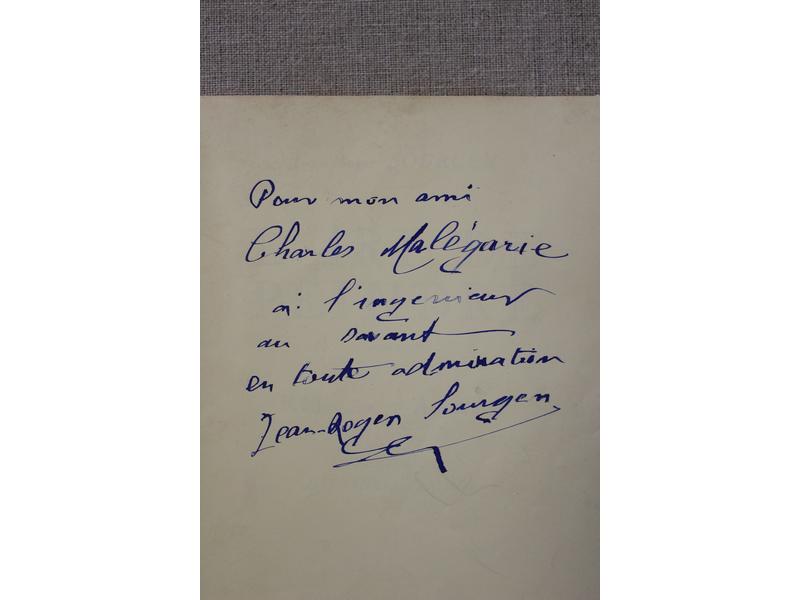 Pour mon ami
Charles Malégarie
à l'ingenieur
au savant
en toute admiration
Jean-Roger Sourgen